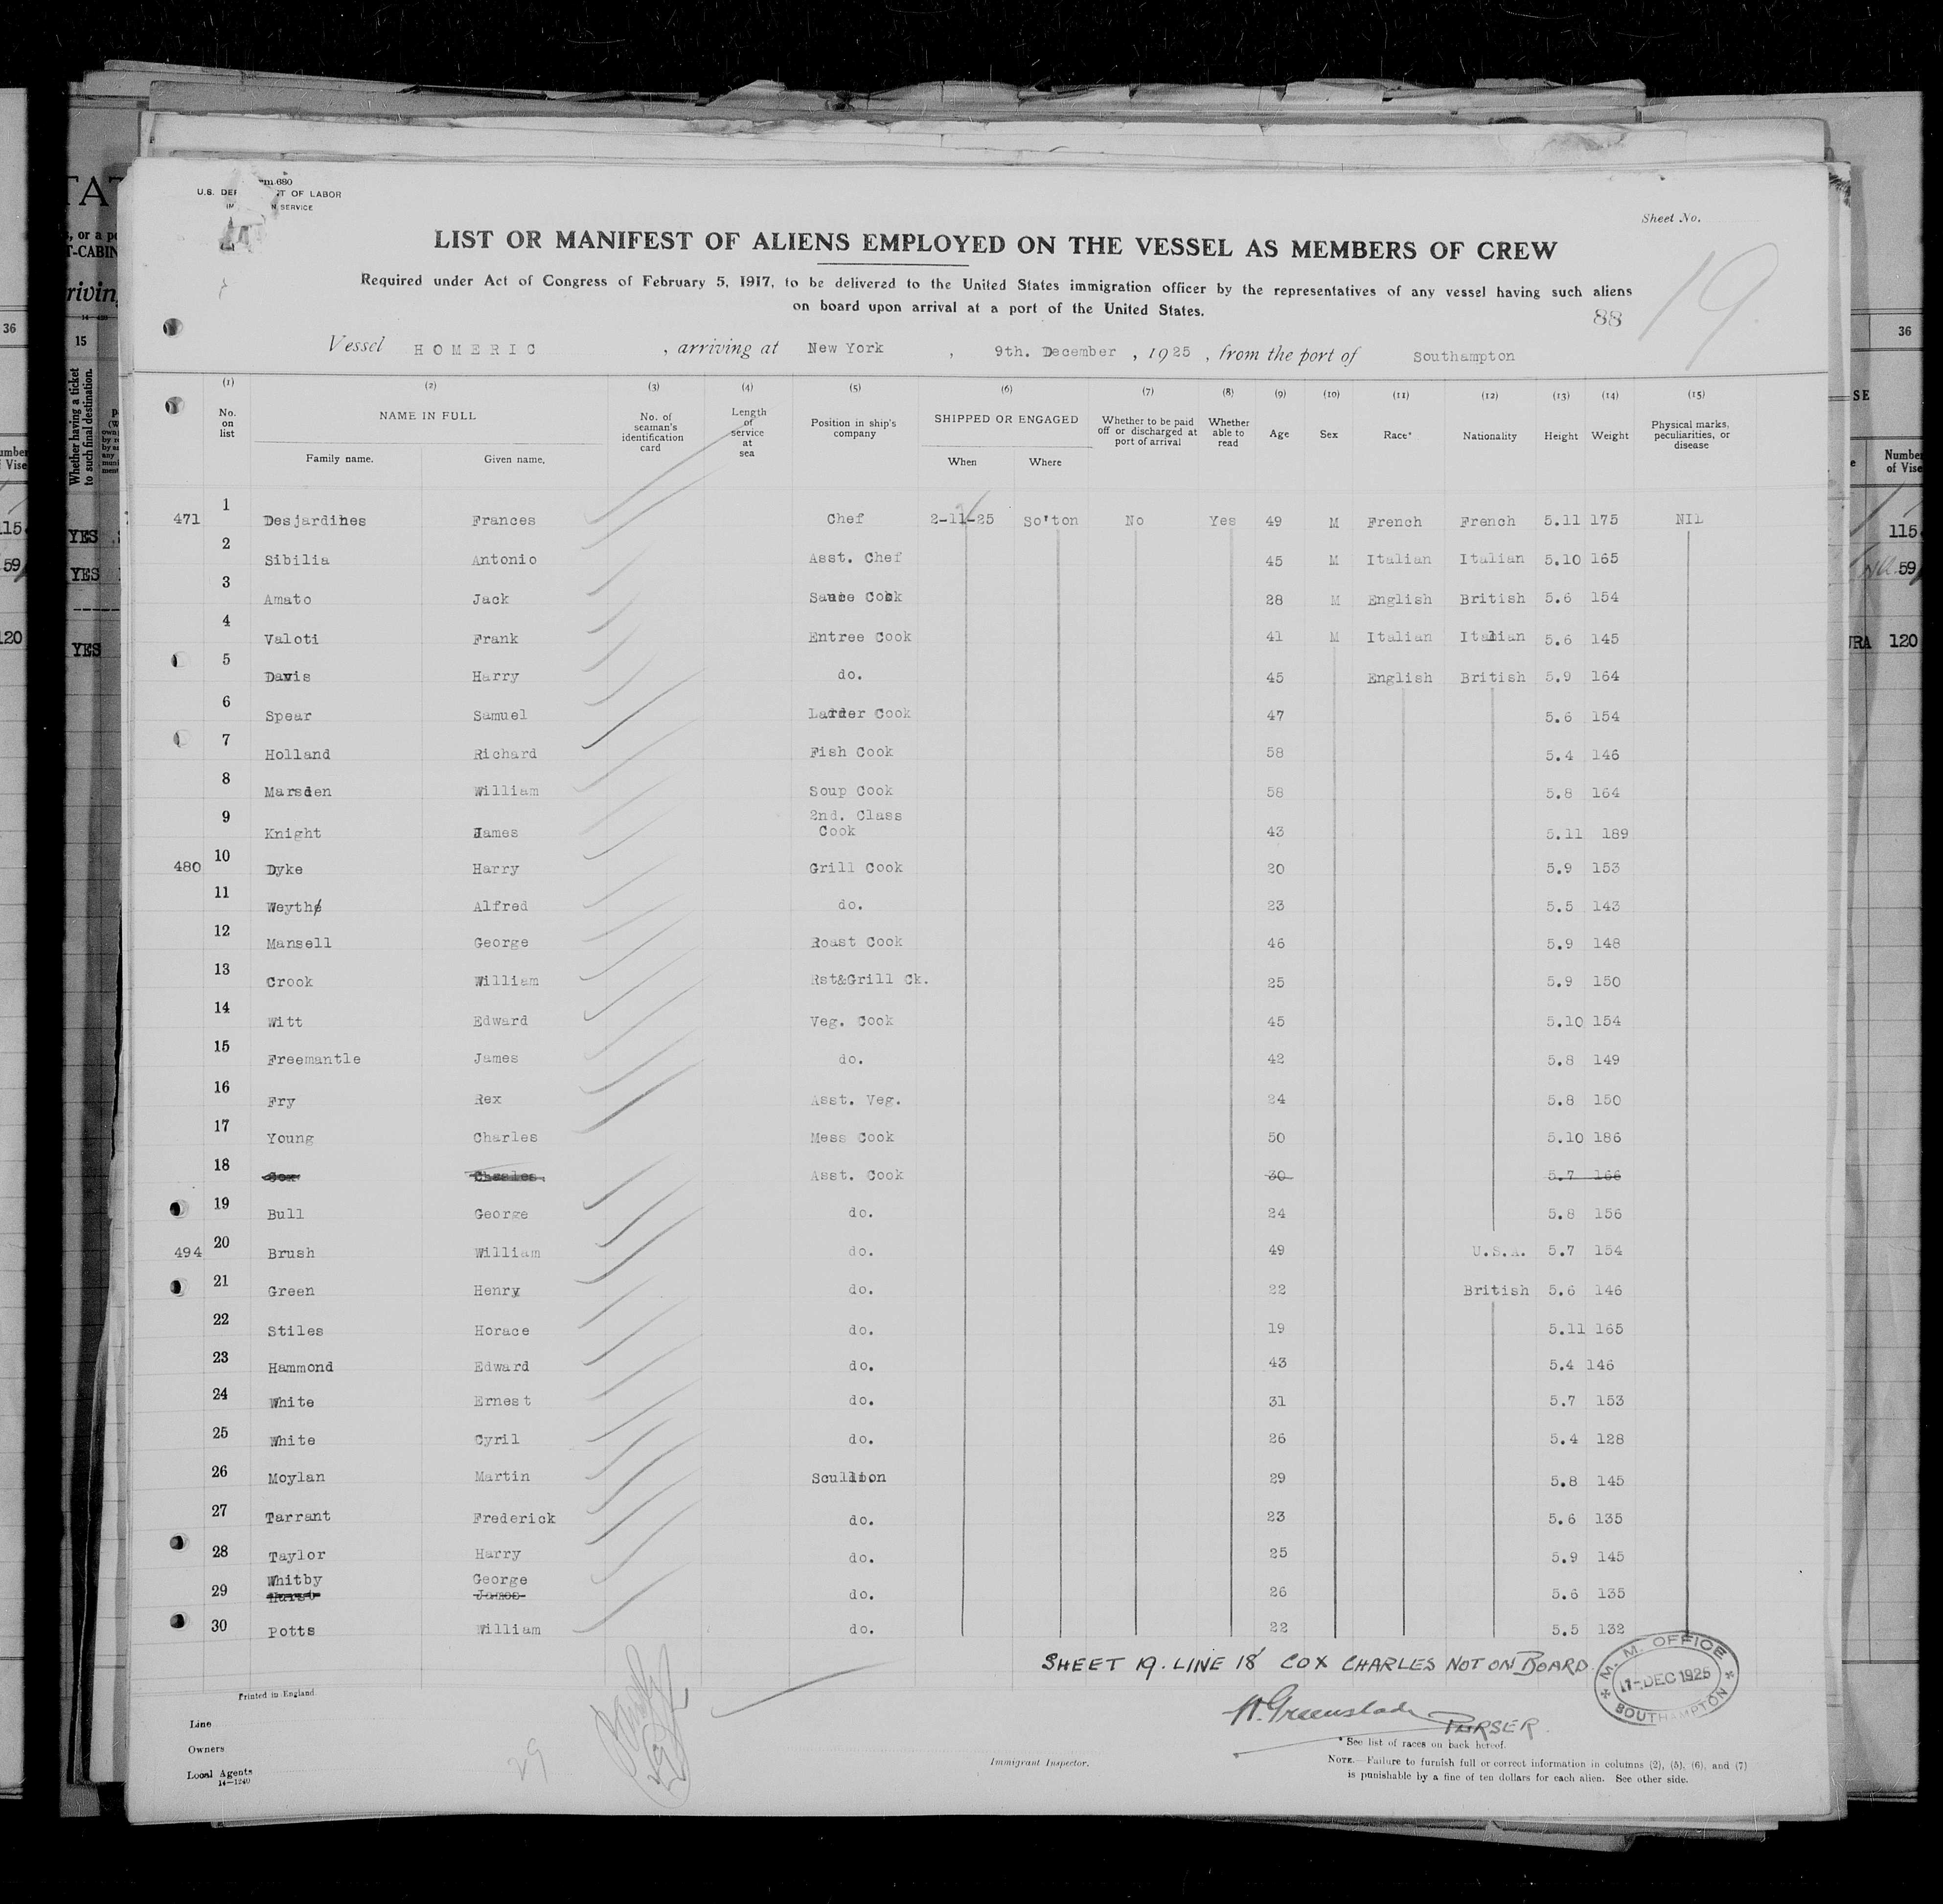 U.S. DEP T OF LABOR
N SERVICE
Sheet No.
19
LIST OR MANIFEST OF ALIENS EMPLOYED ON THE VESSEL AS MEMBERS OF CREW
Required under Act of Congress of February 5, 1917, to be delivered to the United States immigration officer by the representatives of any vessel having such aliens
on board upon arrival at a port of the United States.
88
Vessel HOMERIC , arriving at New York , 9th. December , 1925 , from the port of Southampton
(1) (2) (3) (4) (5) (6) (7) (8) (9) (10) (11) (12) (13) (14) (15)
No. on list NAME IN FULL No. of seaman's identification card Length of service at sea Position in ship's company SHIPPED OR ENGAGED Whether to be paid off or discharged at port of arrival Whether able to read Age Sex Race* Nationality Height Weight Physical marks, peculiarities, or disease
Family name. Given name. When Where
471 1 Desjardines Frances Chef 2-11-25 So'ton No Yes 49 M French French 5.11 175 NIL
2 Sibilia Antonio Asst. Chef 45 M Italian Italian 5.10 165
3 Amato Jack Sauce Cook 28 M English British 5.6 154
4 Valoti Frank Entree Cook 41 M Italian Italian 5.6 145
5 Davis Harry do. 45 English British 5.9 164
6 Spear Samuel Larder Cook 47 5.6 154
7 Holland Richard Fish Cook 58 5.4 146
8 Marsden William Soup Cook 58 5.8 164
9 Knight James 2nd. Class Cook 43 5.11 189
480 10 Dyke Harry Grill Cook 20 5.9 153
11 Weythe Alfred do. 23 5.5 143
12 Mansell George Roast Cook 46 5.9 148
13 Crook William Rst&Grill Ck. 25 5.9 150
14 Witt Edward Veg. Cook 45 5.10 154
15 Freemantle James do. 42 5.8 149
16 Fry Rex Asst. Veg. 24 5.8 150
17 Young Charles Mess Cook 50 5.10 186
18 Cox Charles Asst. Cook 30 5.7 166
19 Bull George do. 24 5.8 156
494 20 Brush William do. 49 U.S.A. 5.7 154
21 Green Henry do. 22 British 5.6 146
22 Stiles Horace do. 19 5.11 165
23 Hammond Edward do. 43 5.4 146
24 White Ernest do. 31 5.7 153
25 White Cyril do. 26 5.4 128
26 Moylan Martin Scullion 29 5.8 145
27 Tarrant Frederick do. 23 5.6 135
28 Taylor Harry do. 25 5.9 145
Whitby George
29 Hurst James do. 26 5.6 135
30 Potts William do. 22 5.5 132
SHEET 19. LINE 18 COX CHARLES NOT ON BOARD
M. M. OFFICE
17-DEC 1925
SOUTHAMPTON
H. Greenslade
PURSER
Printed in England
Line
Owners
Local Agents
14-1240
29
Immigrant Inspector.
* See list of races on back hereof.
NOTE.—Failure to furnish full or correct information in columns (2), (5), (6), and (7)
is punishable by a fine of ten dollars for each alien. See other side.
36
15
Whether having a ticket to such final destination.
YES
YES
YES
115
59
120
36
Number of Vise
115
59
120